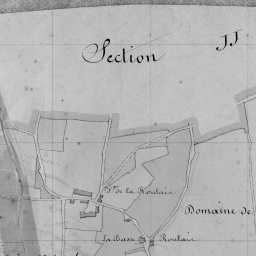 Section
JJ
de la Roulais
Domaine de
la Basse Roulais